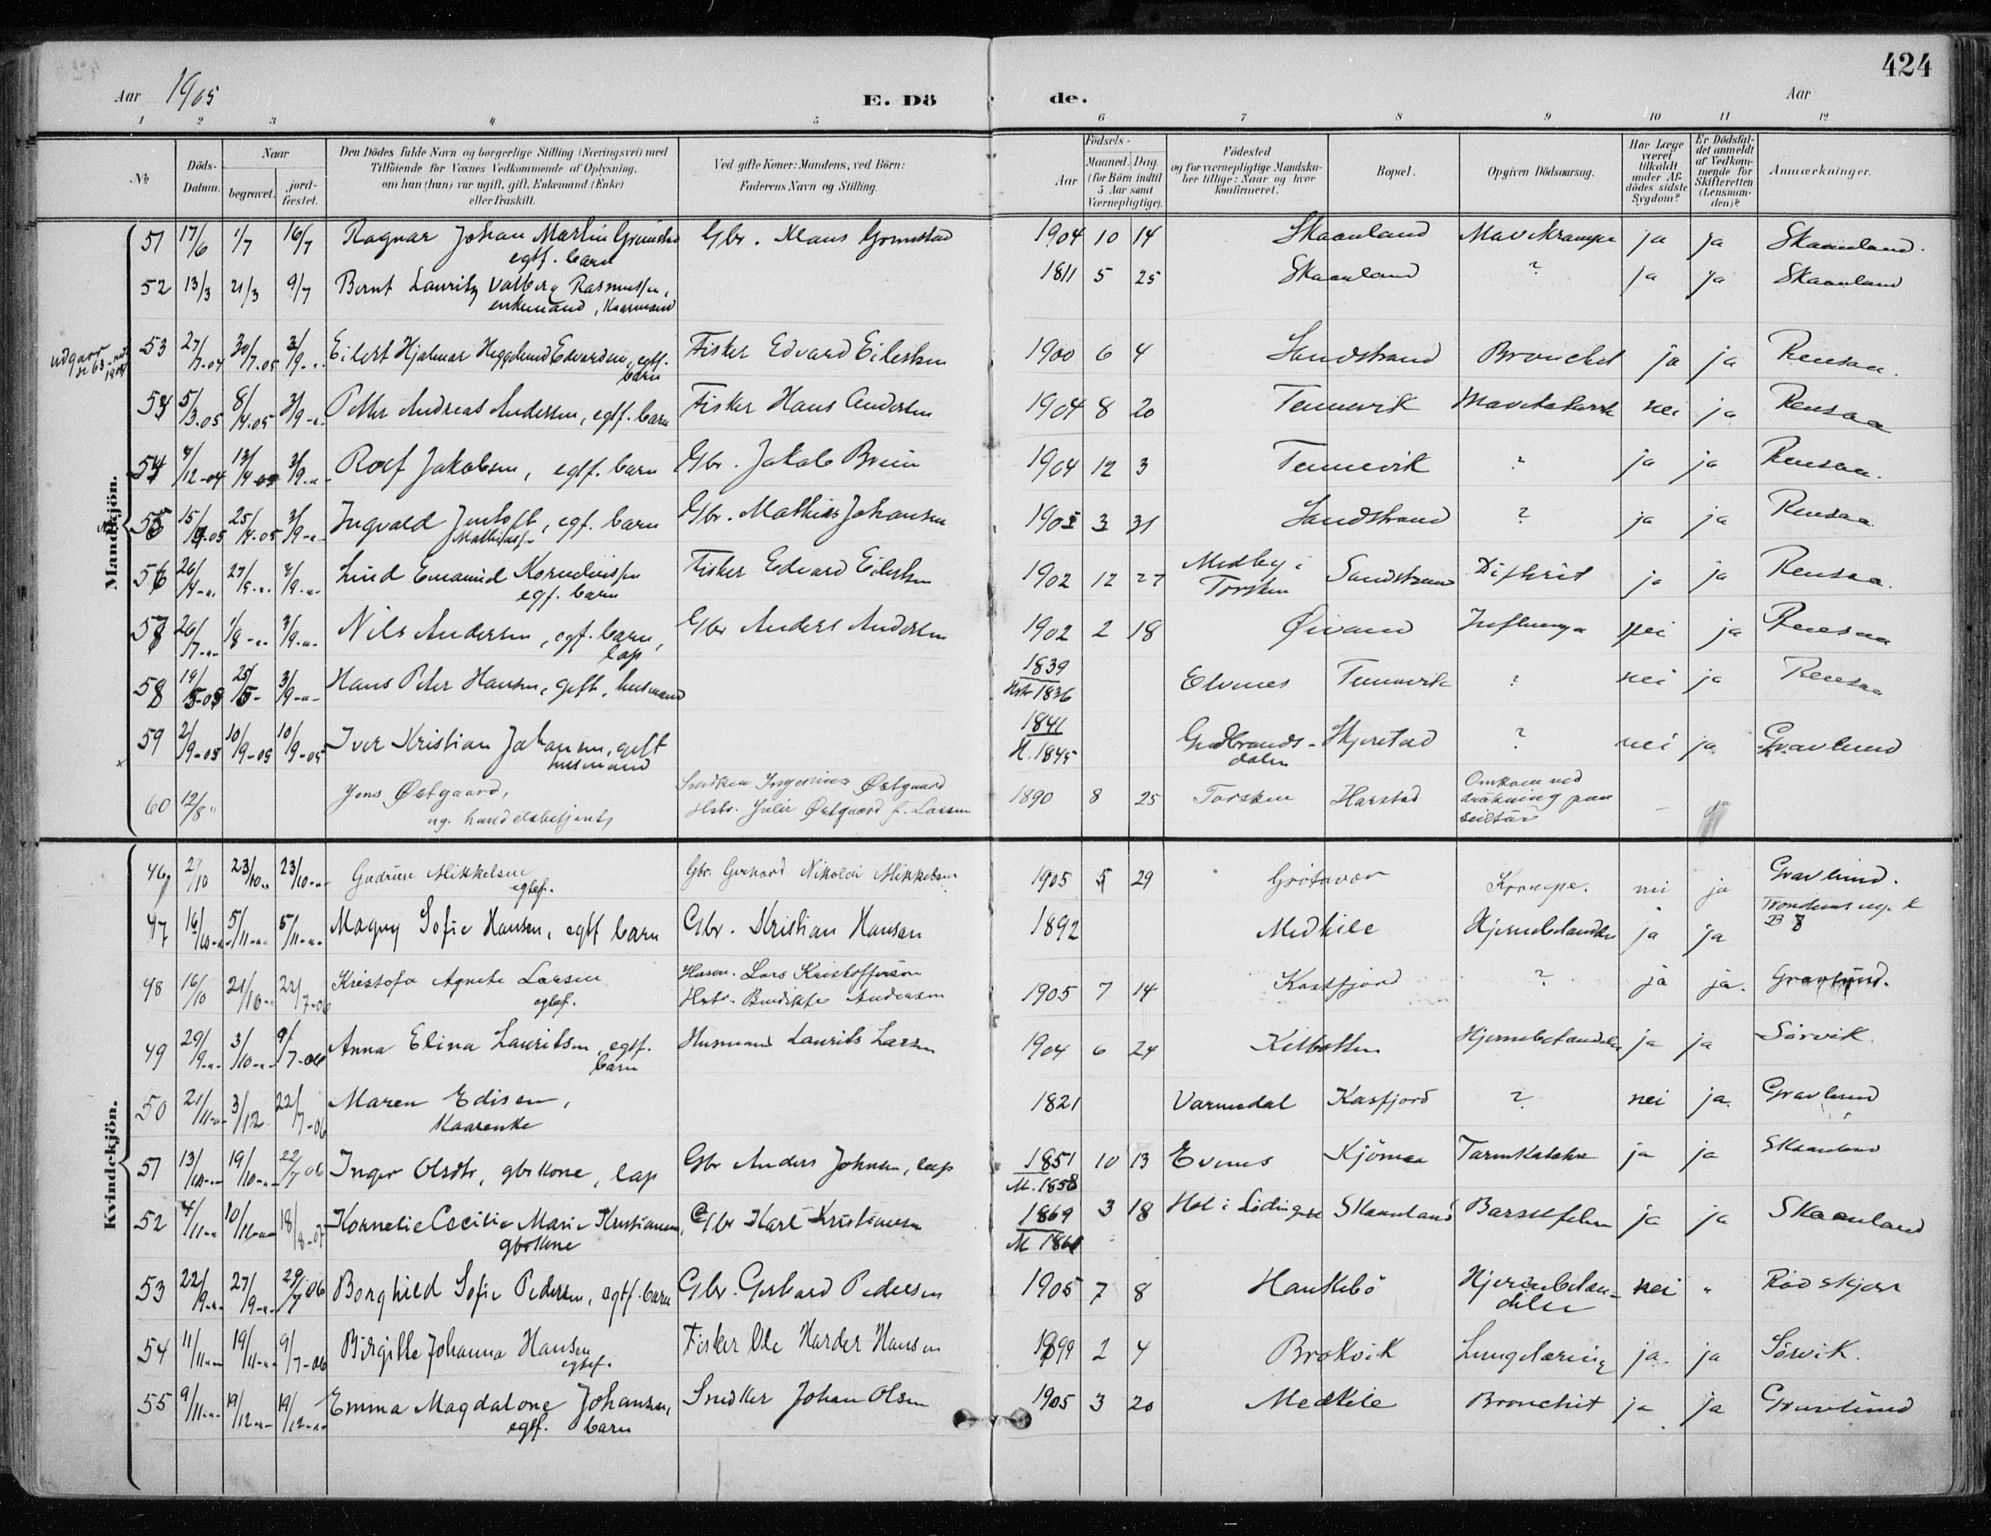 424
Aar 1905
E. Dö de.
Aar
1 2 3 4 5 6 7 8 9 10 11 12
No
Döds-Datum.
Naar
begravet.
jord-fæstet.
Den Dödes fulde Navn og borgerlige Stilling (Næringsvei) med
Tilföiende for Voxnes Vedkommende af Oplysning,
om han (hun) var ugift, gift, Enkemand (Enke)
eller fraskilt.
Ved gifte Koner: Mandens, ved Börn:
Faderens Navn og Stilling.
Födsels-
Aar
Maaned. Dag.
(for Börn indtil
5 Aar samt
Værnepligtige).
Födested
og for værnepligtige Mandska-
ber tillige: Naar og hvor
konfirmeret.
Bopæl.
Opgiven Dödsaarsag.
Har Læge
været
tilkaldt
under Af-
dödes sidste
Sygdom?
Er Dödsfal-
det anmeldt
af Vedkom-
mende for
Skifteretten
(Lensman-
den)?
Anmærkninger.
Mandkjön.
51 17/6 1/7 16/7 Ragnar Johan Martin Grimstad Gbr. Klaus Grimstad 1904 10 14 Skaanland Mavekrampe ja ja Skaanland.
egtf. barn
52 13/3 21/3 9/7 Bernt Lauritz Valberg Rasmussen, 1811 5 25 Skaanland ? ja ja Skaanland
enkemand, Kaarmand
udgaar
53 27/7-04 30/7-05 3/9-"- Eilert Hjalmar Heggelund Edvardsen, egtf. Fisker Edvard Eilertsen 1900 6 4 Sandstrand Bronchit ja ja Rensaa.
barn
54 5/3.05 8/4.05 3/9-"- Petter Andreas Andersen, egtf. barn Fisker Hans Andersen 1904 8 20 Tennevik Mavekatarrh nei ja Rensaa
54 4/12-04 13/4-05 3/9-"- Rolf Jakobsen, egtf. barn Gbr. Jakob Brein 1904 12 3 Tennevik ? ja ja Rensaa.
55 15/4-05 25/4-05 3/9-"- Ingvald Jentoft, egf. barn Gbr. Mathias Johansen 1905 3 31 Sandstrand ? ja ja Rensaa.
56 26/4-"- 27/9-"- 3/9-"- Lind Emamid Korneliussen Fisker Edvard Eilertsen 1902 12 27 Medby i Torsken Sandstrand Difterit ja ja Rensaa.
egf. barn
57 26/7-"- 1/8-"- 3/9-"- Nils Andersen, egf. barn, Gbr Anders Andersen 1902 2 18 Øivand Influenza nei ja Rensaa
lap
58 19/5-05 25/5- 3/9-"- Hans Peter Hansen, gift, husmand 1839 Hstr 1836 Elvenes Tennevik ? nei ja Rensaa
59 2/9-05 10/9-05 10/9-05 Iver Kristian Johansen, gift 1841 H. 1845 Gudbrands-dalen Skjerstad ? nei ja Gravlund
husmand
60 12/8" Jens Østgaard, Snedker Ingenius Østgaard 1890 8 25 Torsken Harstad Omkom ved
ug. handelsbetjent, Hstr. Julie Østgaard f. Larsen drukning paa
seiltur
Kvindekjön.
46 2/10 23/10-"- 23/10-"- Gudrun Mikkelsen Gbr. Gerhard Nikolai Mikkelsen 1905 5 29 Grötavær Krampe. nei ja Gravlund.
egtef.
Trondenes reg. t
47 16/10-"- 5/11-"- 5/11-"- Magny Sofie Hansen, egtf barn Gbr. Kristian Hansen 1892 Medkile Hjernebetændelse ja ja B 8
48 16/10 21/10-"- 22/7-06 Kristofa Agnete Larsen Husm. Lars Kristoffersen 1905 7 14 Kasfjord ? ja ja. Gravlund.
egtef. Hstr. Bendikte Andersen
49 29/9-"- 3/10-"- 9/7-06 Anna Elina Lauritsen, egtf. Husmand Laurits Larsen 1904 6 24 Kilbotten Hjernebetændelse ja ja Sörvik.
barn
50 21/11-"- 3/12 22/7-06 Maren Edisen, 1821 Varmedal Kasfjord ? nei ja. Gravlund
Kaarenke
51 13/10-"- 19/10-"- 22/7 06 Inger Olsdtr, gbrkone, lap Gbr Anders Johnsen, lap 1851 M. 1858 10 13 Evenes Kjömaa Tarmkatahr ja ja Skaanland
52 4/11-"- 10/11-"- 18/8-07 Kornelie Cecilie Marie Kristiansen, Gbr Karl Kristiansen 1869 M 1861 3 18 Hol i Lödingen Skaanland Barselfeber ja ja Skaanland
gbrkone
53 22/9-"- 27/9-"- 29/7 06 Borghild Sofie Pedersen, egtf. barn Gbr. Gerhard Pedersen 1905 7 8 Haukebö Hjernebetæn-delse nei " Rödskjær
54 11/11-"- 19/11-"- 9/7-06 Birgitte Johanna Hansen Fisker Ole Harder Hansen 1899 2 4 Brokvik Lungetæring ja. ja Sörvik.
egtef.
55 9/11-"- 19/12-"- 19/12-"- Emma Magdalone Johansen, Snedker Johan Olsen 1905 3 20 Medkile Bronchit ja ja Gravlund
egtf. barn